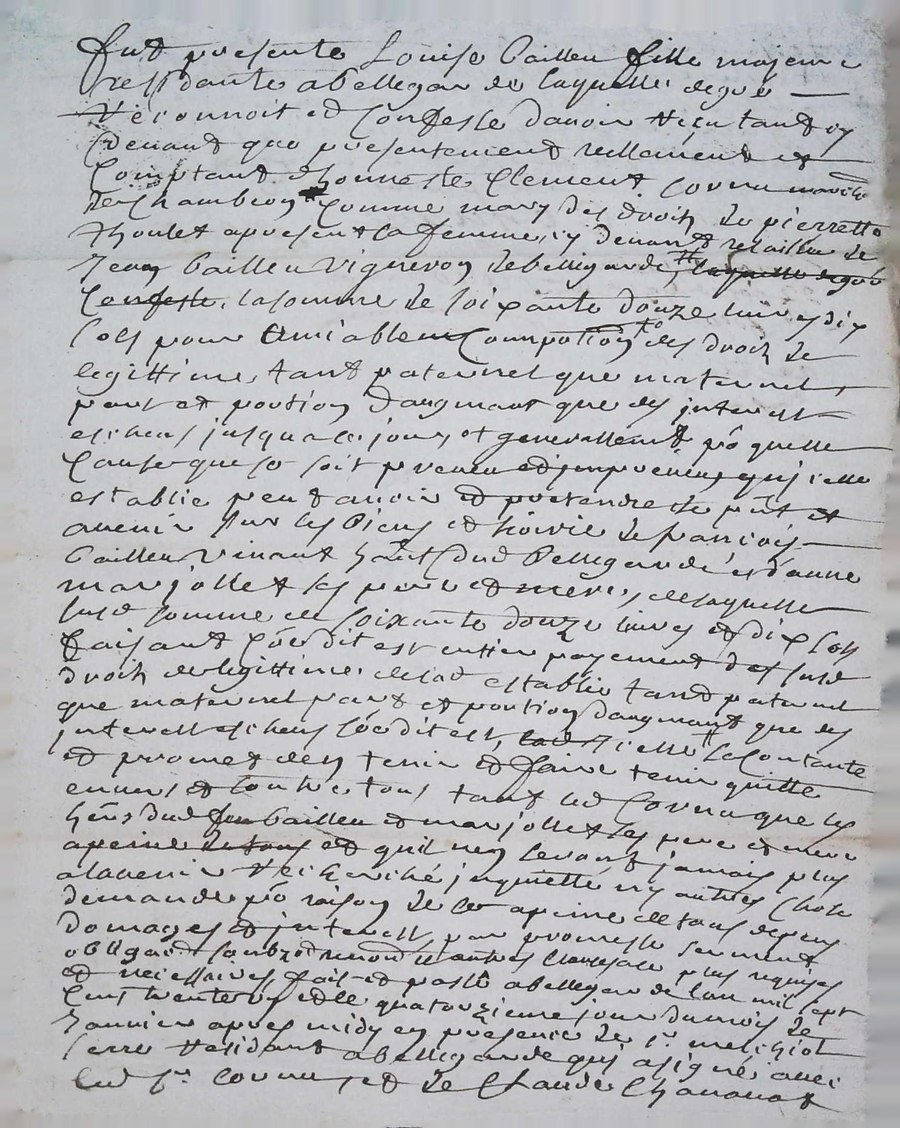 fut presente Louise bailleu fille majeure
residante a bellegarde laquelle de gré
reconnoit et confesse d'avoir receu tant cy
devant que presentement reellement et
comptant d'honneste Clement Cornu march
de Chambeon comme mary des droits de pierrette
thoulet a present sa femme, cy devant relaissee de
Jean bailleu vigneron de bellegarde, laquelle de gré
confesse, la somme de soixante douze livres dix
sols pour amiable compotion des droits de
legittime, tant paternel que maternel,
part et portion daugmant que des interest
escheus jusqua ce jour, et generallement po quelle
cause que ce soit preveue et impreveue qu'icelle
establie peut avoir et pretendre de pnt et
avenir sur les biens et hoirie de francois
bailleu vivant hant dud bellegarde et danne
marjollet ses pere et mere, de laquelle
susd somme de soixante douze livres et dix sols
faisant lentier payement des susd
droits de legittime de lad establie tant paternel
que maternel part et portion daugmant que des
interest escheus icelle sen contante
et promet de len tenir et faire tenir quitte
envers et contre tous tant led Cornu que les
hers dud feu bailleu et marjollet ses pere et mere
a peine de tous et quil ne seront jamais plus
a lavenir recherché, inquietté ny autres chose
demandé po raison de ce a peine de tous depens
domages et interest, par promesse serment
obligaōn soubzōn renonōn et autres clauses plus requises
et necessaires, fait et passé a bellegarde lan mil sept
cent trente et le quatorzieme jour du mois de
Janvier apres midy en presence de sr melchiol
serre residant a bellegarde qui a signé avec
led sr Cornu, et de Claude Chanavat